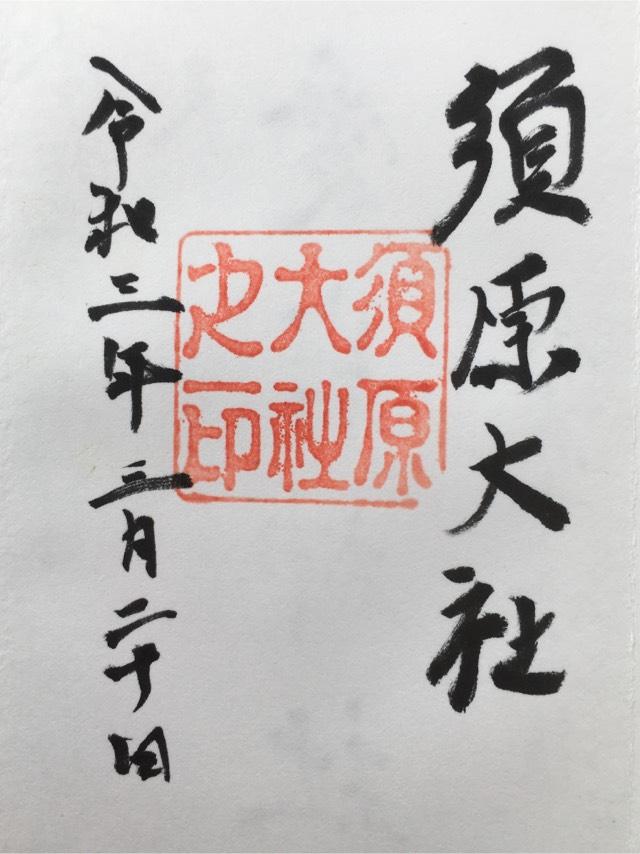 須原大社
須原
大社
之印
令和三年三月二十日